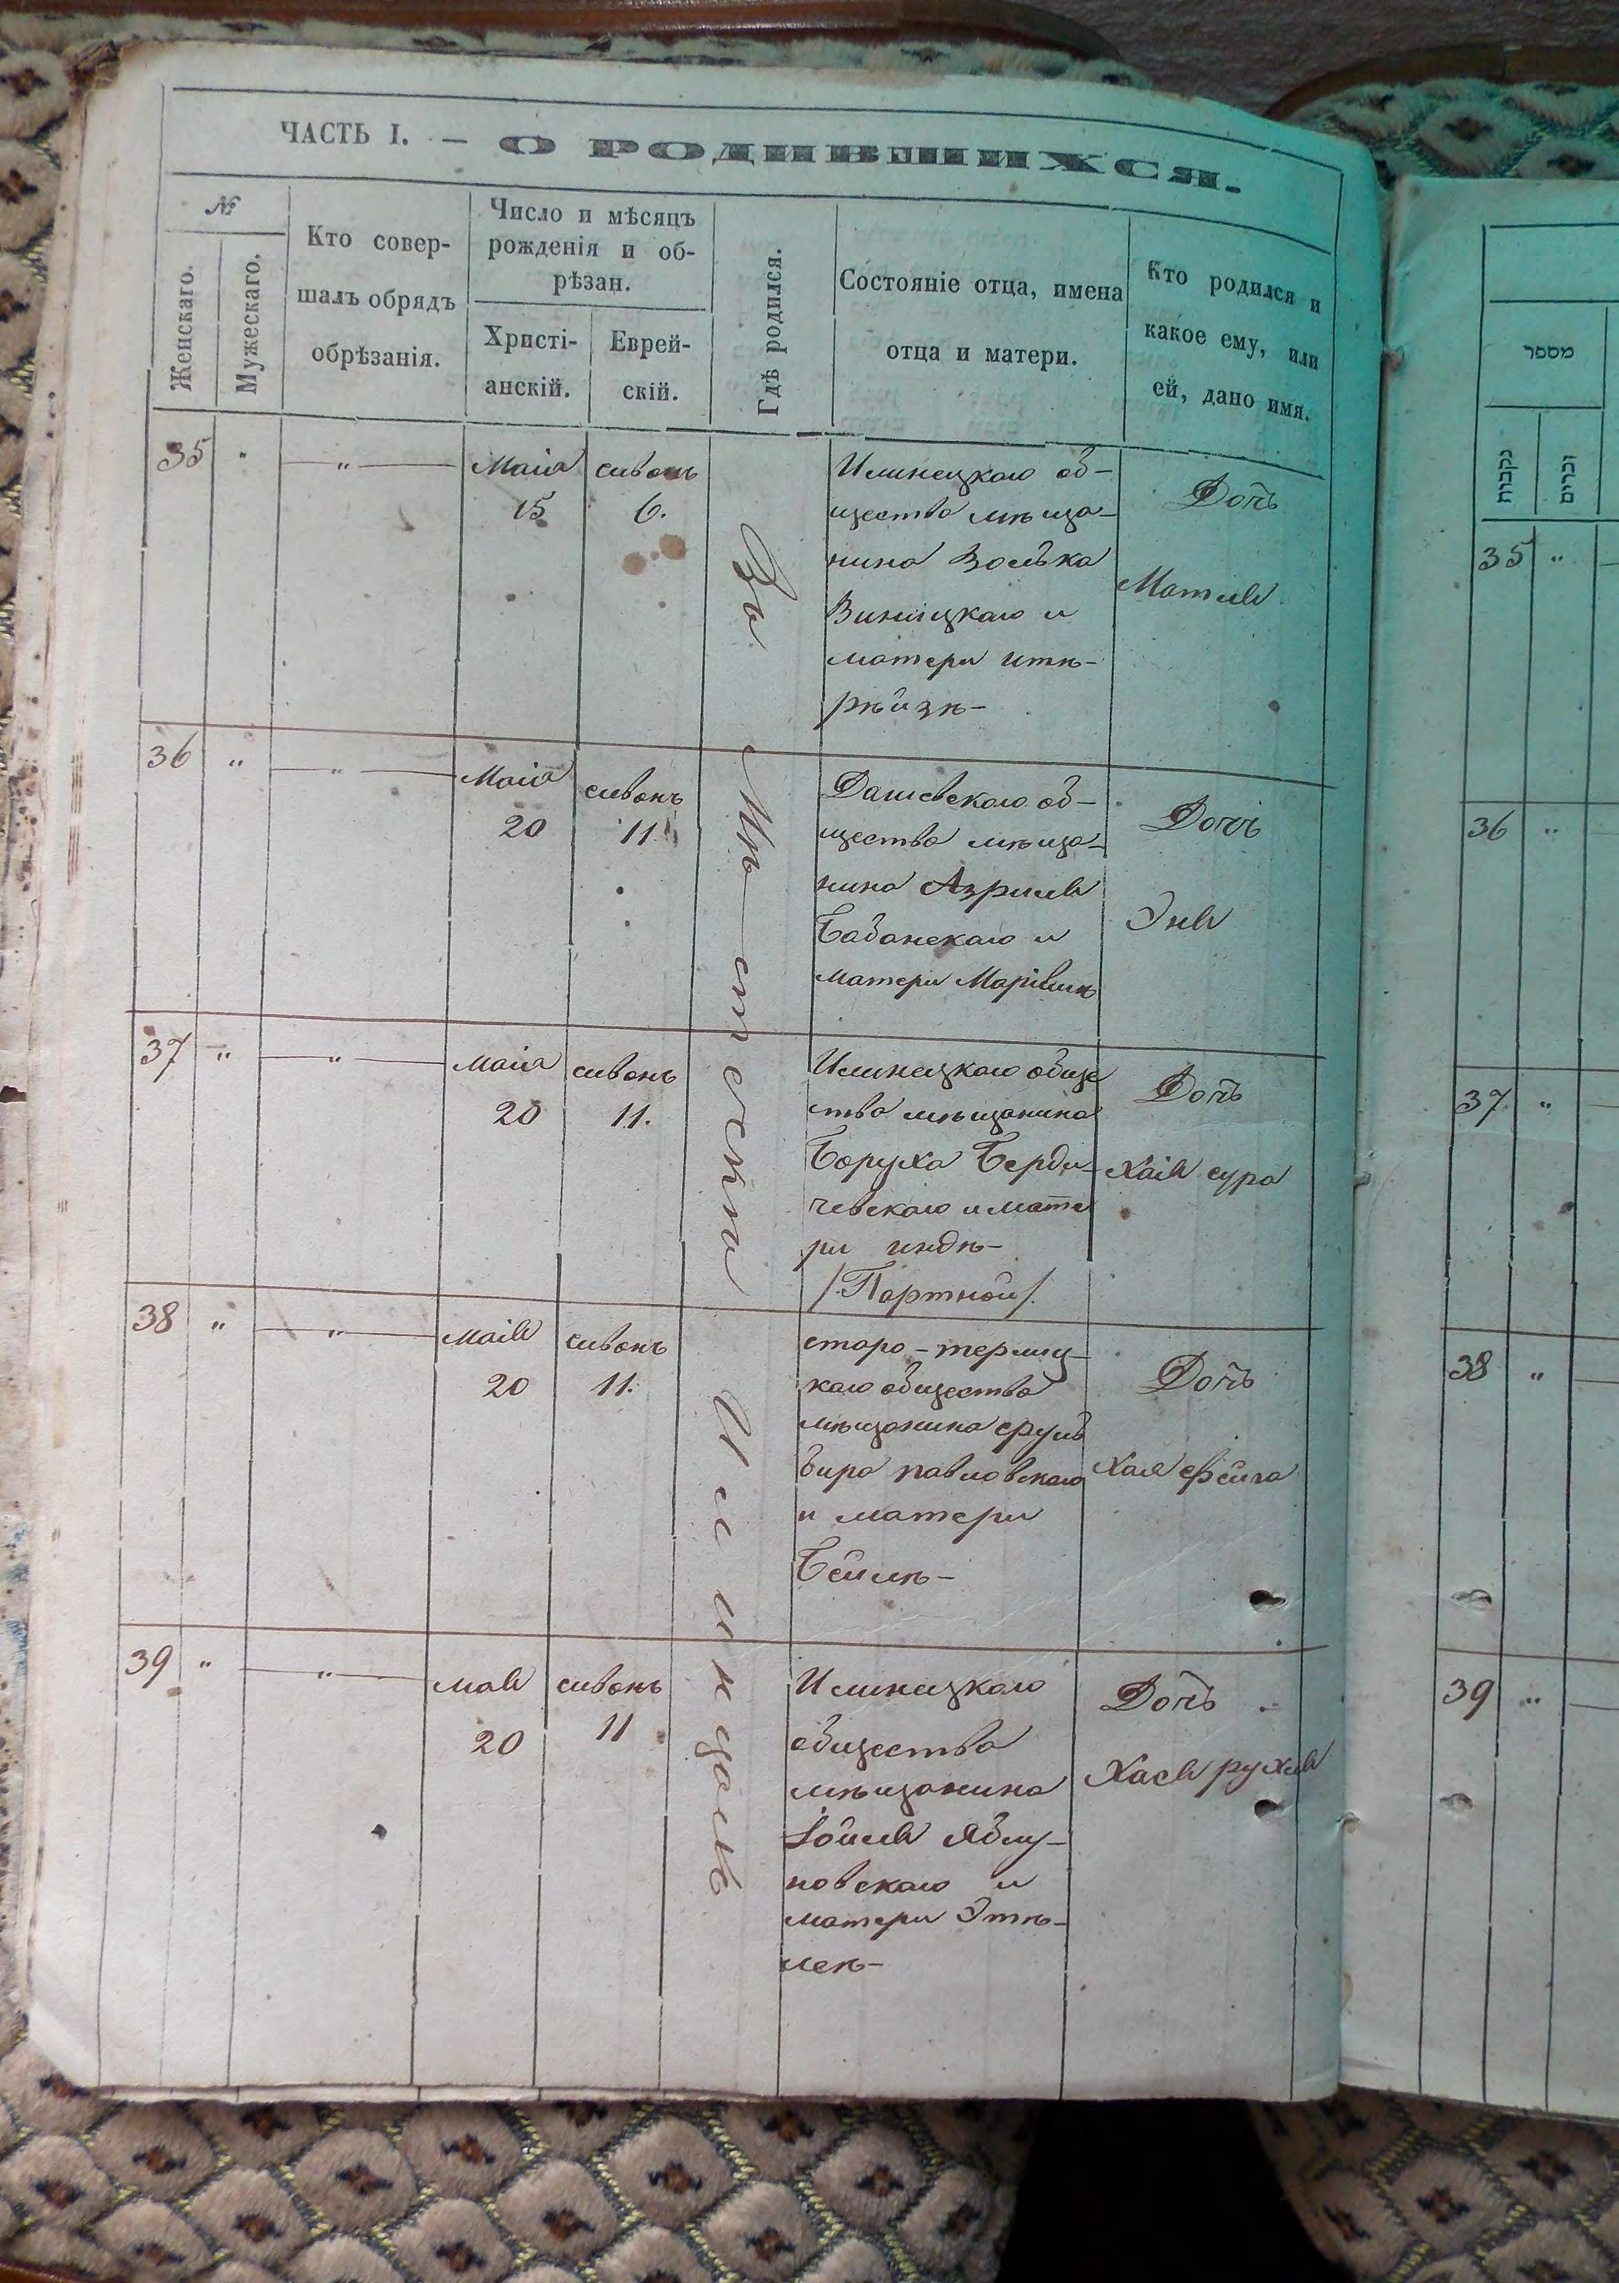 ЧАСТЬ I. — О РОДИВШИХСЯ.
№
Женскаго.
Мужескаго.
Кто совер-
шалъ обрядъ
обрѣзанія.
Число и мѣсяцъ
рожденія и об-
рѣзан.
Христі-
анскій.
Еврей-
скій.
Гдѣ родился.
Состояніе отца, имена
отца и матери.
Кто родился и
какое ему, или
ей, дано имя.
Въ Мѣстечкѣ Илинцахъ
35 " — " —
Маія
15
сивонь
6.
Илинецкаго об-
щества мѣща-
нина Волька
Виницкаго и
матери итѣ-
рѣйзѣ-
Дочь
Матля
36 " — " —
Маія
20
сивонь
11
Дашевскаго об-
щества мѣща-
нина Азриля
Бабанскаго и
матери
Дочь
Эня
37 " — " —
Маія
20
сивонь
11.
Илинецкаго обще
ства мѣщанина
Боруха Берди-
чевскаго и мате
ри индѣ-
/Портной/.
Дочь
Хаія сура
38 " — " —
маія
20
сивонь
11.
старо-
каго общества
мѣщанина сруль
бира павловскаго
и матери
Бейлѣ-
Дочь
Хая фейга
39 " — " —
мая
20
сивонь
11
Илинецкаго
общества
мѣщанина
Іойля Яблу-
новскаго и
матери Этѣ-
леѣ-
Дочь
Хася рухля
מספר
נקבות
זכרים
35 "
36 "
37 "
38 "
39 "